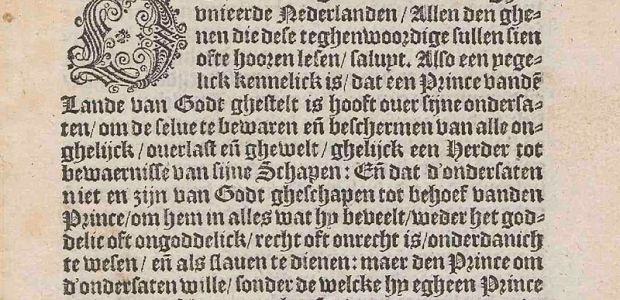 vnieerde Nederlanden/Allen den ghe-
nen die dese teghenwoordige sullen sien
ofte hooren lesen/saluyt. Also een yege-
lick kennelick is/dat een Prince vandẽ
Lande van Godt ghestelt is hooft ouer sijne ondersa-
ten/om de selue te bewaren eñ beschermen van alle on-
ghelijck/ouerlast eñ ghewelt/ghelijck een Herder tot
bewaernisse van sijne Schapen: Eñ dat d'ondersaten
niet en zijn van Godt gheschapen tot behoef vanden
Prince/om hem in alles wat hy beveelt/weder het god-
delic oft ongoddelick/recht oft onrecht is/onderdanich
te wesen/eñ als slauen te dienen: maer den Prince om
d'ondersaten wille/sonder de welcke hy egheen Prince